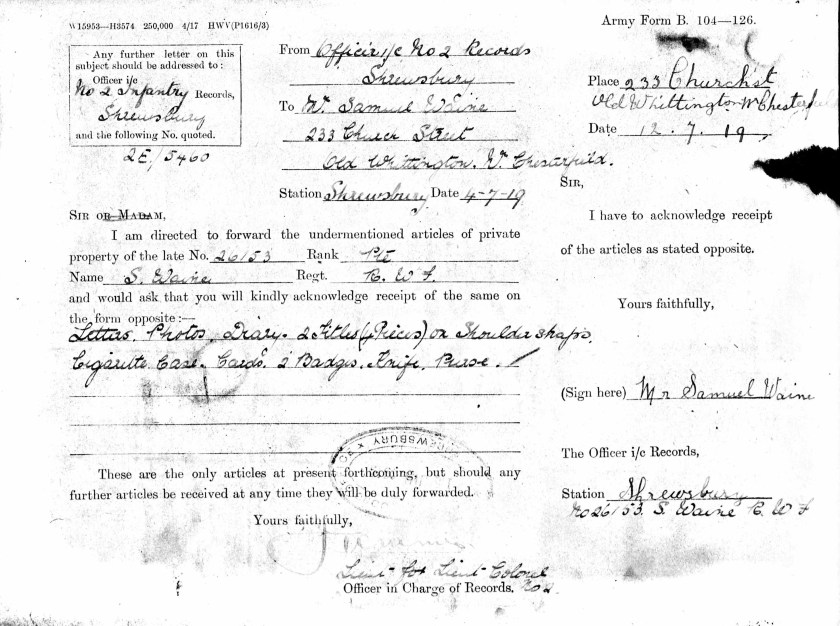 W 15953—H3574 250,000 4/17 HWV(P1616/3)
Any further letter on this
subject should be addressed to :
Officer i/c
No 2 Infantry Records,
Shrewsbury
and the following No. quoted.
2E/5460
From Officer i/c No 2 Records
Shrewsbury
To Mr. Samuel Waine
233 Church Street
Old Whittington. Nr. Chesterfield.
Station Shrewsbury Date 4-7-19
SIR OR MADAM,
I am directed to forward the undermentioned articles of private
property of the late No. 26153 Rank Pte
Name S. Waine Regt. R. W. F.
and would ask that you will kindly acknowledge receipt of the same on
the form opposite :—
Letters, Photos, Diary. 2 Titles (4 Pieces) on Shoulder straps,
Cigarette Case. Cards. 2 Badges. Knife. Purse.
SHREWSBURY
These are the only articles at present forthcoming, but should any
further articles be received at any time they will be duly forwarded.
Yours faithfully,
Lieut- for Lieut-Colonel
Officer in Charge of Records, No 2.
Army Form B. 104—126.
Place 233 Church st
Old Whittington Nr Chesterfield
Date 12.7.19,
SIR,
I have to acknowledge receipt
of the articles as stated opposite.
Yours faithfully,
(Sign here) Mr Samuel Waine
The Officer i/c Records,
Station Shrewsbury
No 26153. S. Waine R. W F